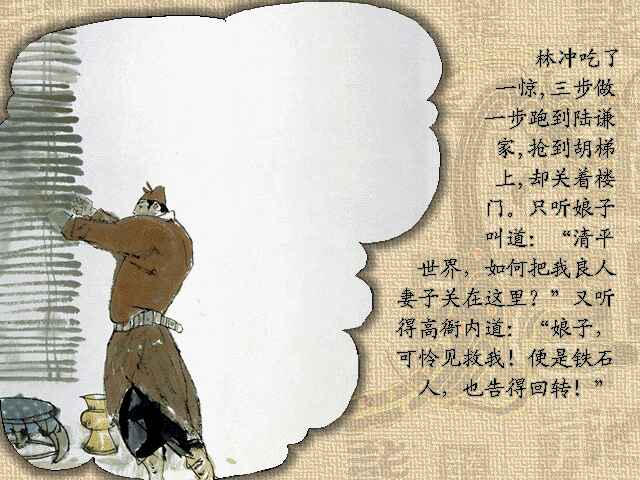 林冲吃了
一惊，三步做
一步跑到陆谦
家，抢到胡梯
上，却关着楼
门。只听娘子
叫道：“清平
世界，如何把我良人
妻子关在这里？”又听
得高衙内道：“娘子，
可怜见救我！便是铁石
人，也告得回转！”